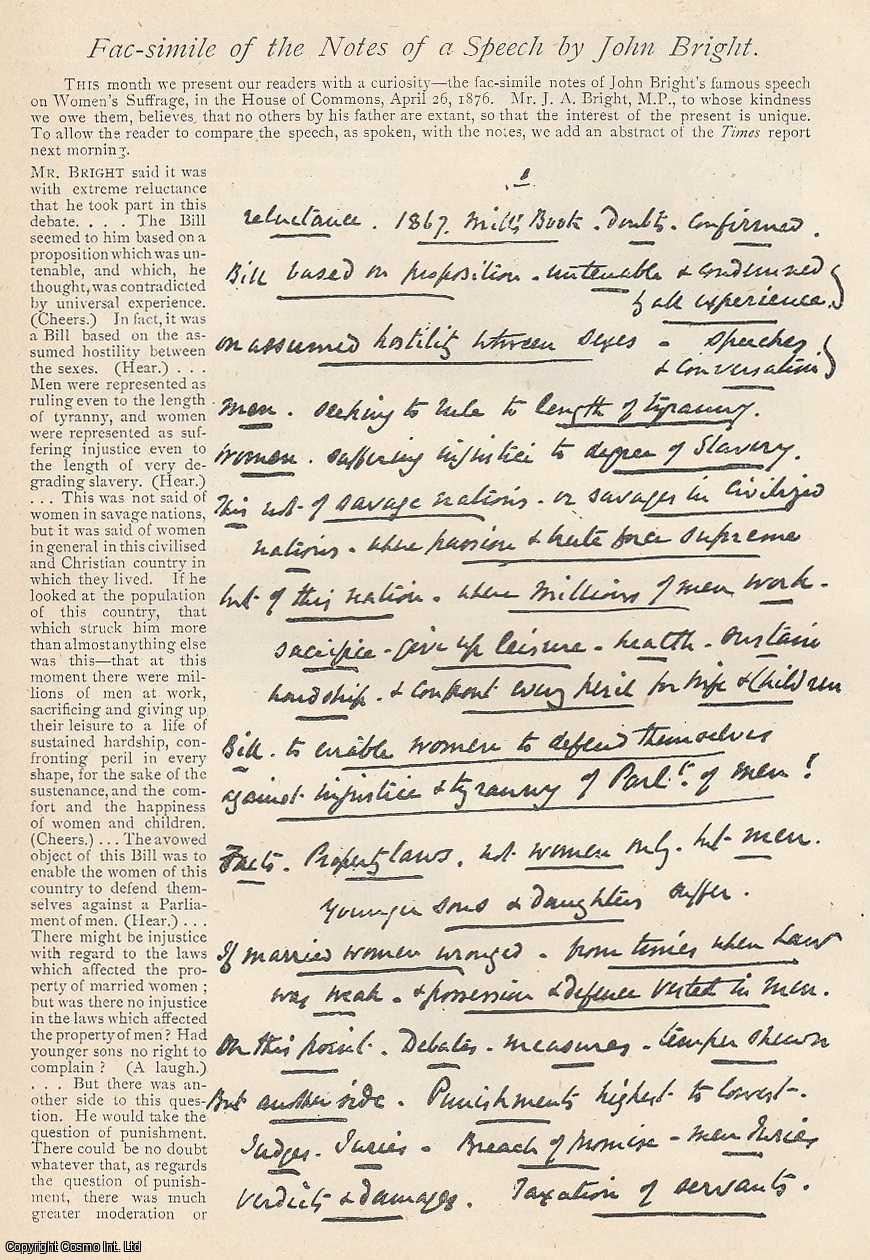 Fac-simile of the Notes of a Speech by John Bright.
THIS month we present our readers with a curiosity—the fac-simile notes of John Bright's famous speech
on Women's Suffrage, in the House of Commons, April 26, 1876. Mr. J. A. Bright, M.P., to whose kindness
we owe them, believes that no others by his father are extant, so that the interest of the present is unique.
To allow the reader to compare the speech, as spoken, with the notes, we add an abstract of the Times report
next morning.
MR. BRIGHT said it was
with extreme reluctance
that he took part in this
debate. . . . The Bill
seemed to him based on a
proposition which was un-
tenable, and which, he
thought, was contradicted
by universal experience.
(Cheers.) In fact, it was
a Bill based on the as-
sumed hostility between
the sexes. (Hear.) . . .
Men were represented as
ruling even to the length
of tyranny, and women
were represented as suf-
fering injustice even to
the length of very de-
grading slavery. (Hear.)
. . . This was not said of
women in savage nations,
but it was said of women
in general in this civilised
and Christian country in
which they lived. If he
looked at the population
of this country, that
which struck him more
than almost anything else
was this—that at this
moment there were mil-
lions of men at work,
sacrificing and giving up
their leisure to a life of
sustained hardship, con-
fronting peril in every
shape, for the sake of the
sustenance, and the com-
fort and the happiness
of women and children.
(Cheers.) . . . The avowed
object of this Bill was to
enable the women of this
country to defend them-
selves against a Parlia-
ment of men. (Hear.) . . .
There might be injustice
with regard to the laws
which affected the pro-
perty of married women ;
but was there no injustice
in the laws which affected
the property of men? Had
younger sons no right to
complain ? (A laugh.)
. . . But there was an-
other side to this ques-
tion. He would take the
question of punishment.
There could be no doubt
whatever that, as regards
the question of punish-
ment, there was much
greater moderation or
1
reluctance . 1867. Mill's Book . Doubts . Confirmed .
Bill based on proposition - untenable & condemned
by all experience.
on assumed hostility between sexes - speeches
& conversation
Men . seeking to rule to length of tyranny.
Women . suffering injustice to degree of Slavery.
This not of savage nations - or savages in Civilized
nations - where passion & brute force supreme
but of this nation - where millions of men work -
sacrifice - give up leisure - health - sustain
hardship - & confront every peril for Wife & Children
Bill . to enable women to defend themselves
against injustice & tyranny of Parlt. of Men !
Facts . Property laws . not women only - but men .
Younger sons & daughters suffer .
If married women wronged - from times when Law
was weak - & possession & defence vested in Men .
On this point - Debates - measures - temper shewn
But another side . Punishments highest to lowest -
Judges - Juries - Breach of Promise - men Juries
Verdicts & damages . Taxation of servants .
Copyright Cosmo Int. Ltd